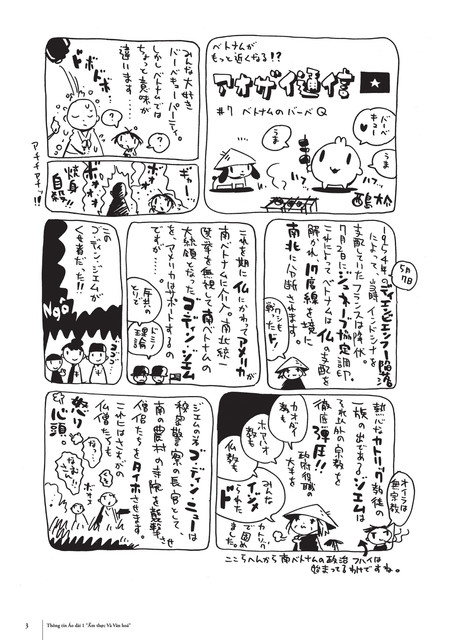 ベトナムが
もっと近くなる!?
アオザイ通信
#7 ベトナムのバーベQ
バーベ
キュー
うま
うま
みんな大好き
バーベキューパーティ。
しかしベトナムでは
ちょっと意味が
違います……
ドボ
ドボ…
?
?
ギャー
ボオオオ
焼身
自殺!!
アチチアチ、!!
1954年のディエンビエンフー陥落
5月7日
によって、当時インドシナを
支配していたフランスは降伏。
7月にジュネーブ協定調印。
これによってベトナムは仏の支配を
解かれ、17度線を境に
南北に分断されます。
ワシも
戦った
これを期に仏にかわってアメリカが
南ベトナムに介入。南北統一
選挙を無視して南ベトナムの
大統領となったゴ・ディン・ジエム
を、アメリカはサポートするの
ですが……。
反共の
とりで
ドミノ
理論
この
ゴ・ディン・ジエムが
くせ者だった!!
Ngô
ゴゴゴ…
熱心なカトリック教徒の
一族の出であるジエムは
それ以外の宗教を
徹底弾圧!!
オイラは
無宗教
カオダイ
教も
ホアハオ
教も
仏教も
みんな
政府役職の
大半を
カトリック
で固め
ました。
ジエムの弟ゴ・ディン・ニューは
秘密警察の長官として、
南の農村の寺院を襲撃させ
僧侶たちをタイホさせます。
これにはさすがの
仏僧たちも
怒り
心頭。
なっ
なむ
さん!!
ここらへんから南ベトナムの政治フハイは
始まってるわけですね。
3
Thông tin Áo dài 1 "Ẩm thực Và Văn hoá"